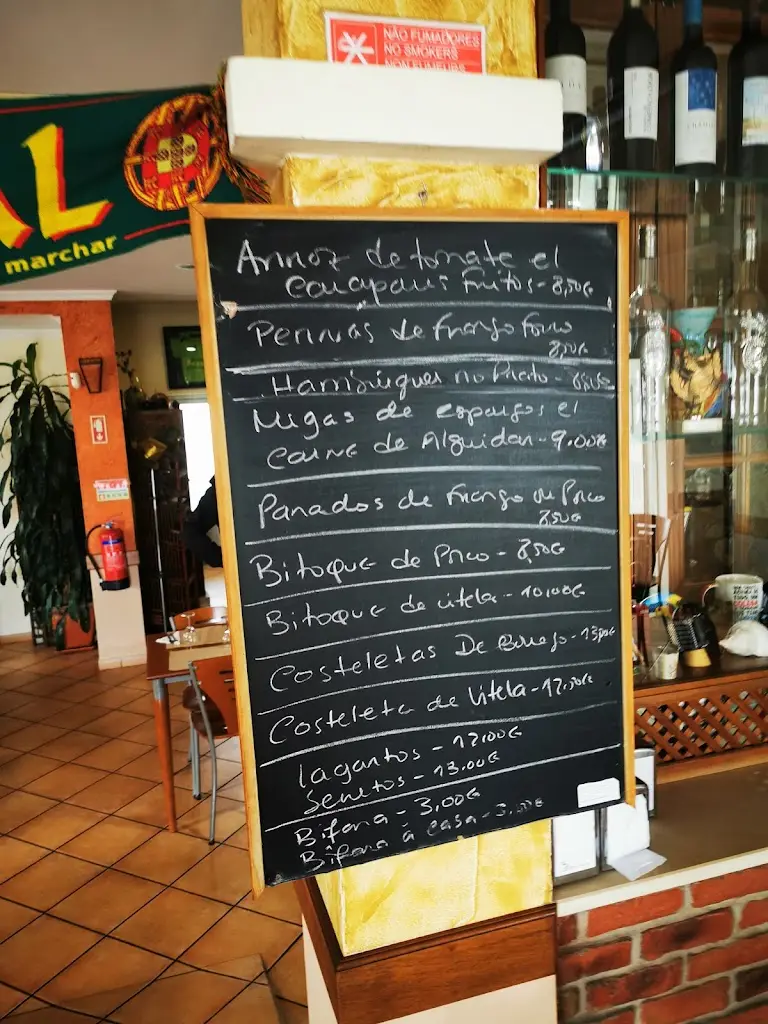 NÃO FUMADORES
NO SMOKERS
NON FUMEURS
AL
marchar
Arroz de tomate e/
carapaus fritos - 8,50€
Pernas de frango forno
8,50€
Hambúrguer no Prato -
Migas de espargos e/
carne de Alguidar - 9.00€
Panados de frango ou Porco
8,50€
Bitoque de Porco - 8,50€
Bitoque de vitela - 10,00€
Costeletas De Borrego - 13,00€
Costeleta de Vitela - 12,50€
lagartos - 12,00€
Secretos - 13.00€
Bifana - 3,00€
Bifana à casa -